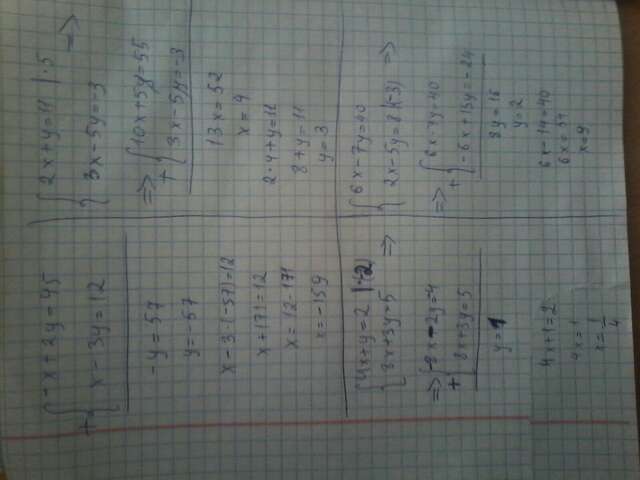 { -x+2y=45
+ { x-3y=12
-y=57
y=-57
x-3·(-57)=12
x+171=12
x=12-171
x=-159
{ 2x+y=11 |·5
{ 3x-5y=-3 =>
=> { 10x+5y=55
+ { 3x-5y=-3
13x=52
x=4
2·4+y=11
8+y=11
y=3
{ 4x+y=2 |·(-2)
{ 8x+3y=5 =>
=> { -8x-2y=-4
+ { 8x+3y=5
y=1
4x+1=2
4x=1
x=1/4
{ 6x-7y=40
{ 2x-5y=8 |(-3) =>
=> { 6x-7y=40
+ { -6x+15y=-24
8y=16
y=2
6x-14=40
6x=54
x=9